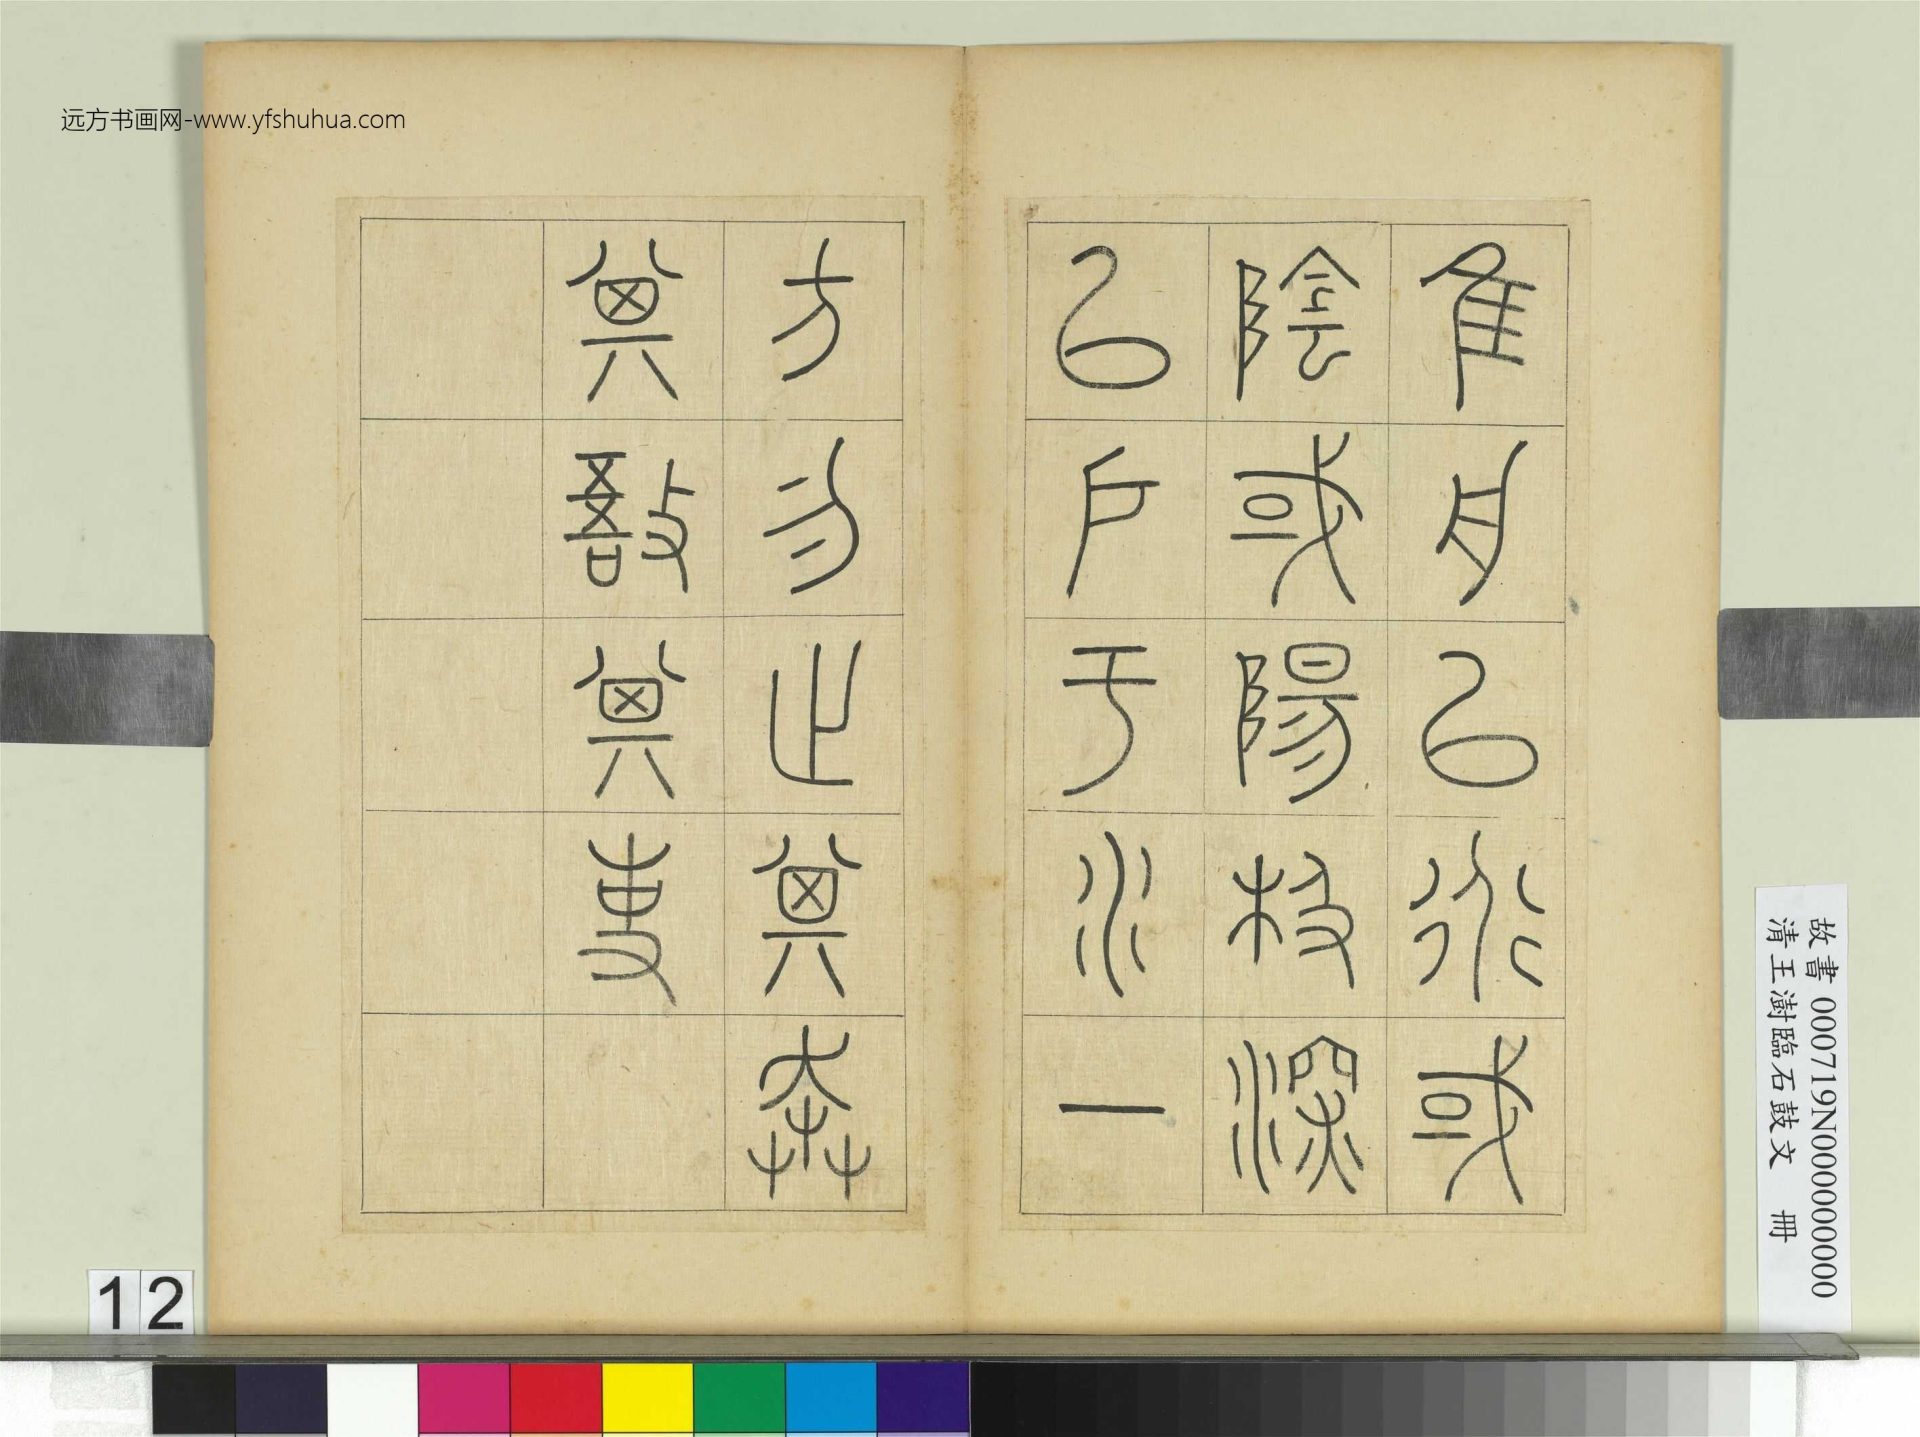 远方书画网-www.yfshuhua.com
隹舟以衍或
陰或陽极深
以戶于水一
方勿止其奔
其敔其事
故書 000719N000000000
清王澍臨石鼓文 冊
12